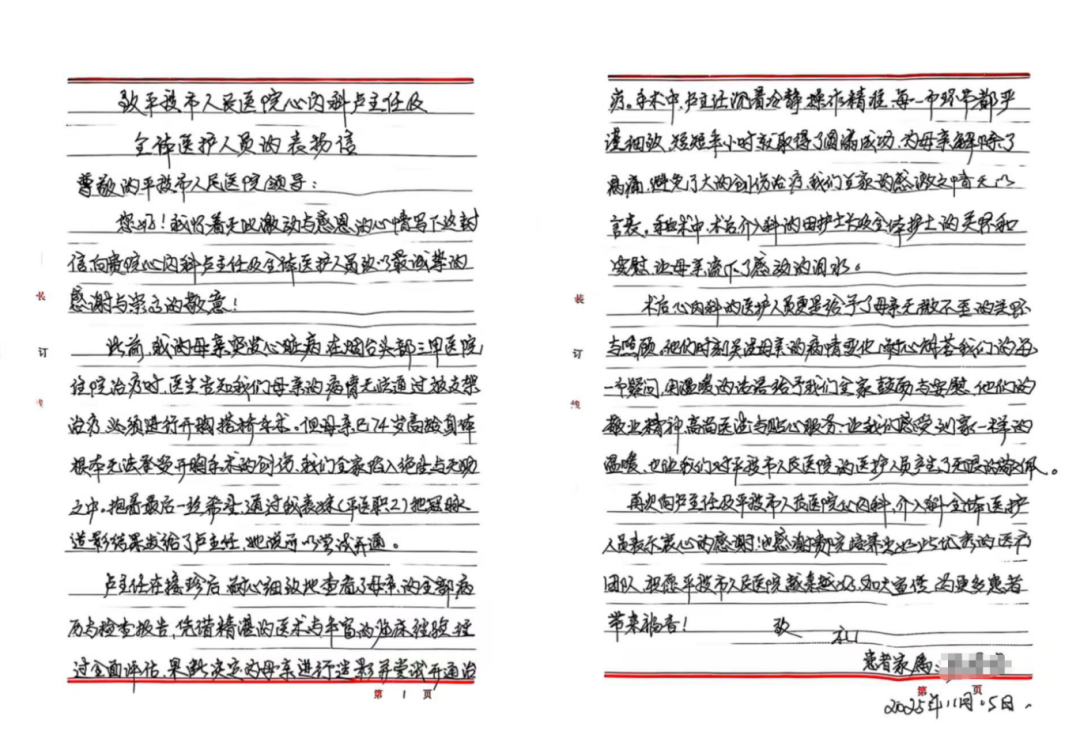 致平度市人民医院心内科卢主任及
全体医护人员的表扬信
尊敬的平度市人民医院领导：
您好！我怀着无比激动与感恩的心情写下这封
信，向贵院心内科卢主任及全体医护人员致以最诚挚的
感谢与崇高的敬意！
此前，我的母亲突发心脏病，在烟台头部三甲医院
住院治疗时，医生告知我们母亲的病情无法通过放支架
治疗，必须进行开胸搭桥手术。但母亲已74岁高龄，身体
根本无法承受开胸手术的创伤，我们全家陷入绝望与无助
之中。抱着最后一丝希望，通过我表妹(平医职工)把冠脉
造影结果发给了卢主任，她说可以尝试开通。
卢主任在接诊后，耐心细致地查看了母亲的全部病
历与检查报告，凭借精湛的医术与丰富的临床经验，经
过全面评估，果断决定为母亲进行造影并尝试开通治
装
订
线
第 1 页
疗。手术中，卢主任沉着冷静，操作精准，每一个环节都严
谨细致，短短半小时就取得了圆满成功，为母亲解除了
病痛，避免了大的创伤治疗，我们全家的感激之情无以
言表。手术中、术后介入科的田护士长及全体护士的关怀和
安慰，让母亲流下了感动的泪水。
术后心内科的医护人员更是给予了母亲无微不至的关怀
与照顾，他们时刻关注母亲的病情变化，耐心解答我们的每
一个疑问，用温暖的话语给予我们全家鼓励与安慰，他们的
敬业精神、高尚医德与贴心服务，让我们感受到家一样的
温暖，也让我们对平度市人民医院的医护人员产生了无限的敬佩。
再次向卢主任及平度市人民医院心内科、介入科全体医护
人员表示衷心的感谢！也感谢贵院培养出如此优秀的医疗
团队，祝愿平度市人民医院越来越好，加大宣传，为更多患者
带来福音！
致
礼
患者家属：
装
订
线
第 页
2025年11月05日.